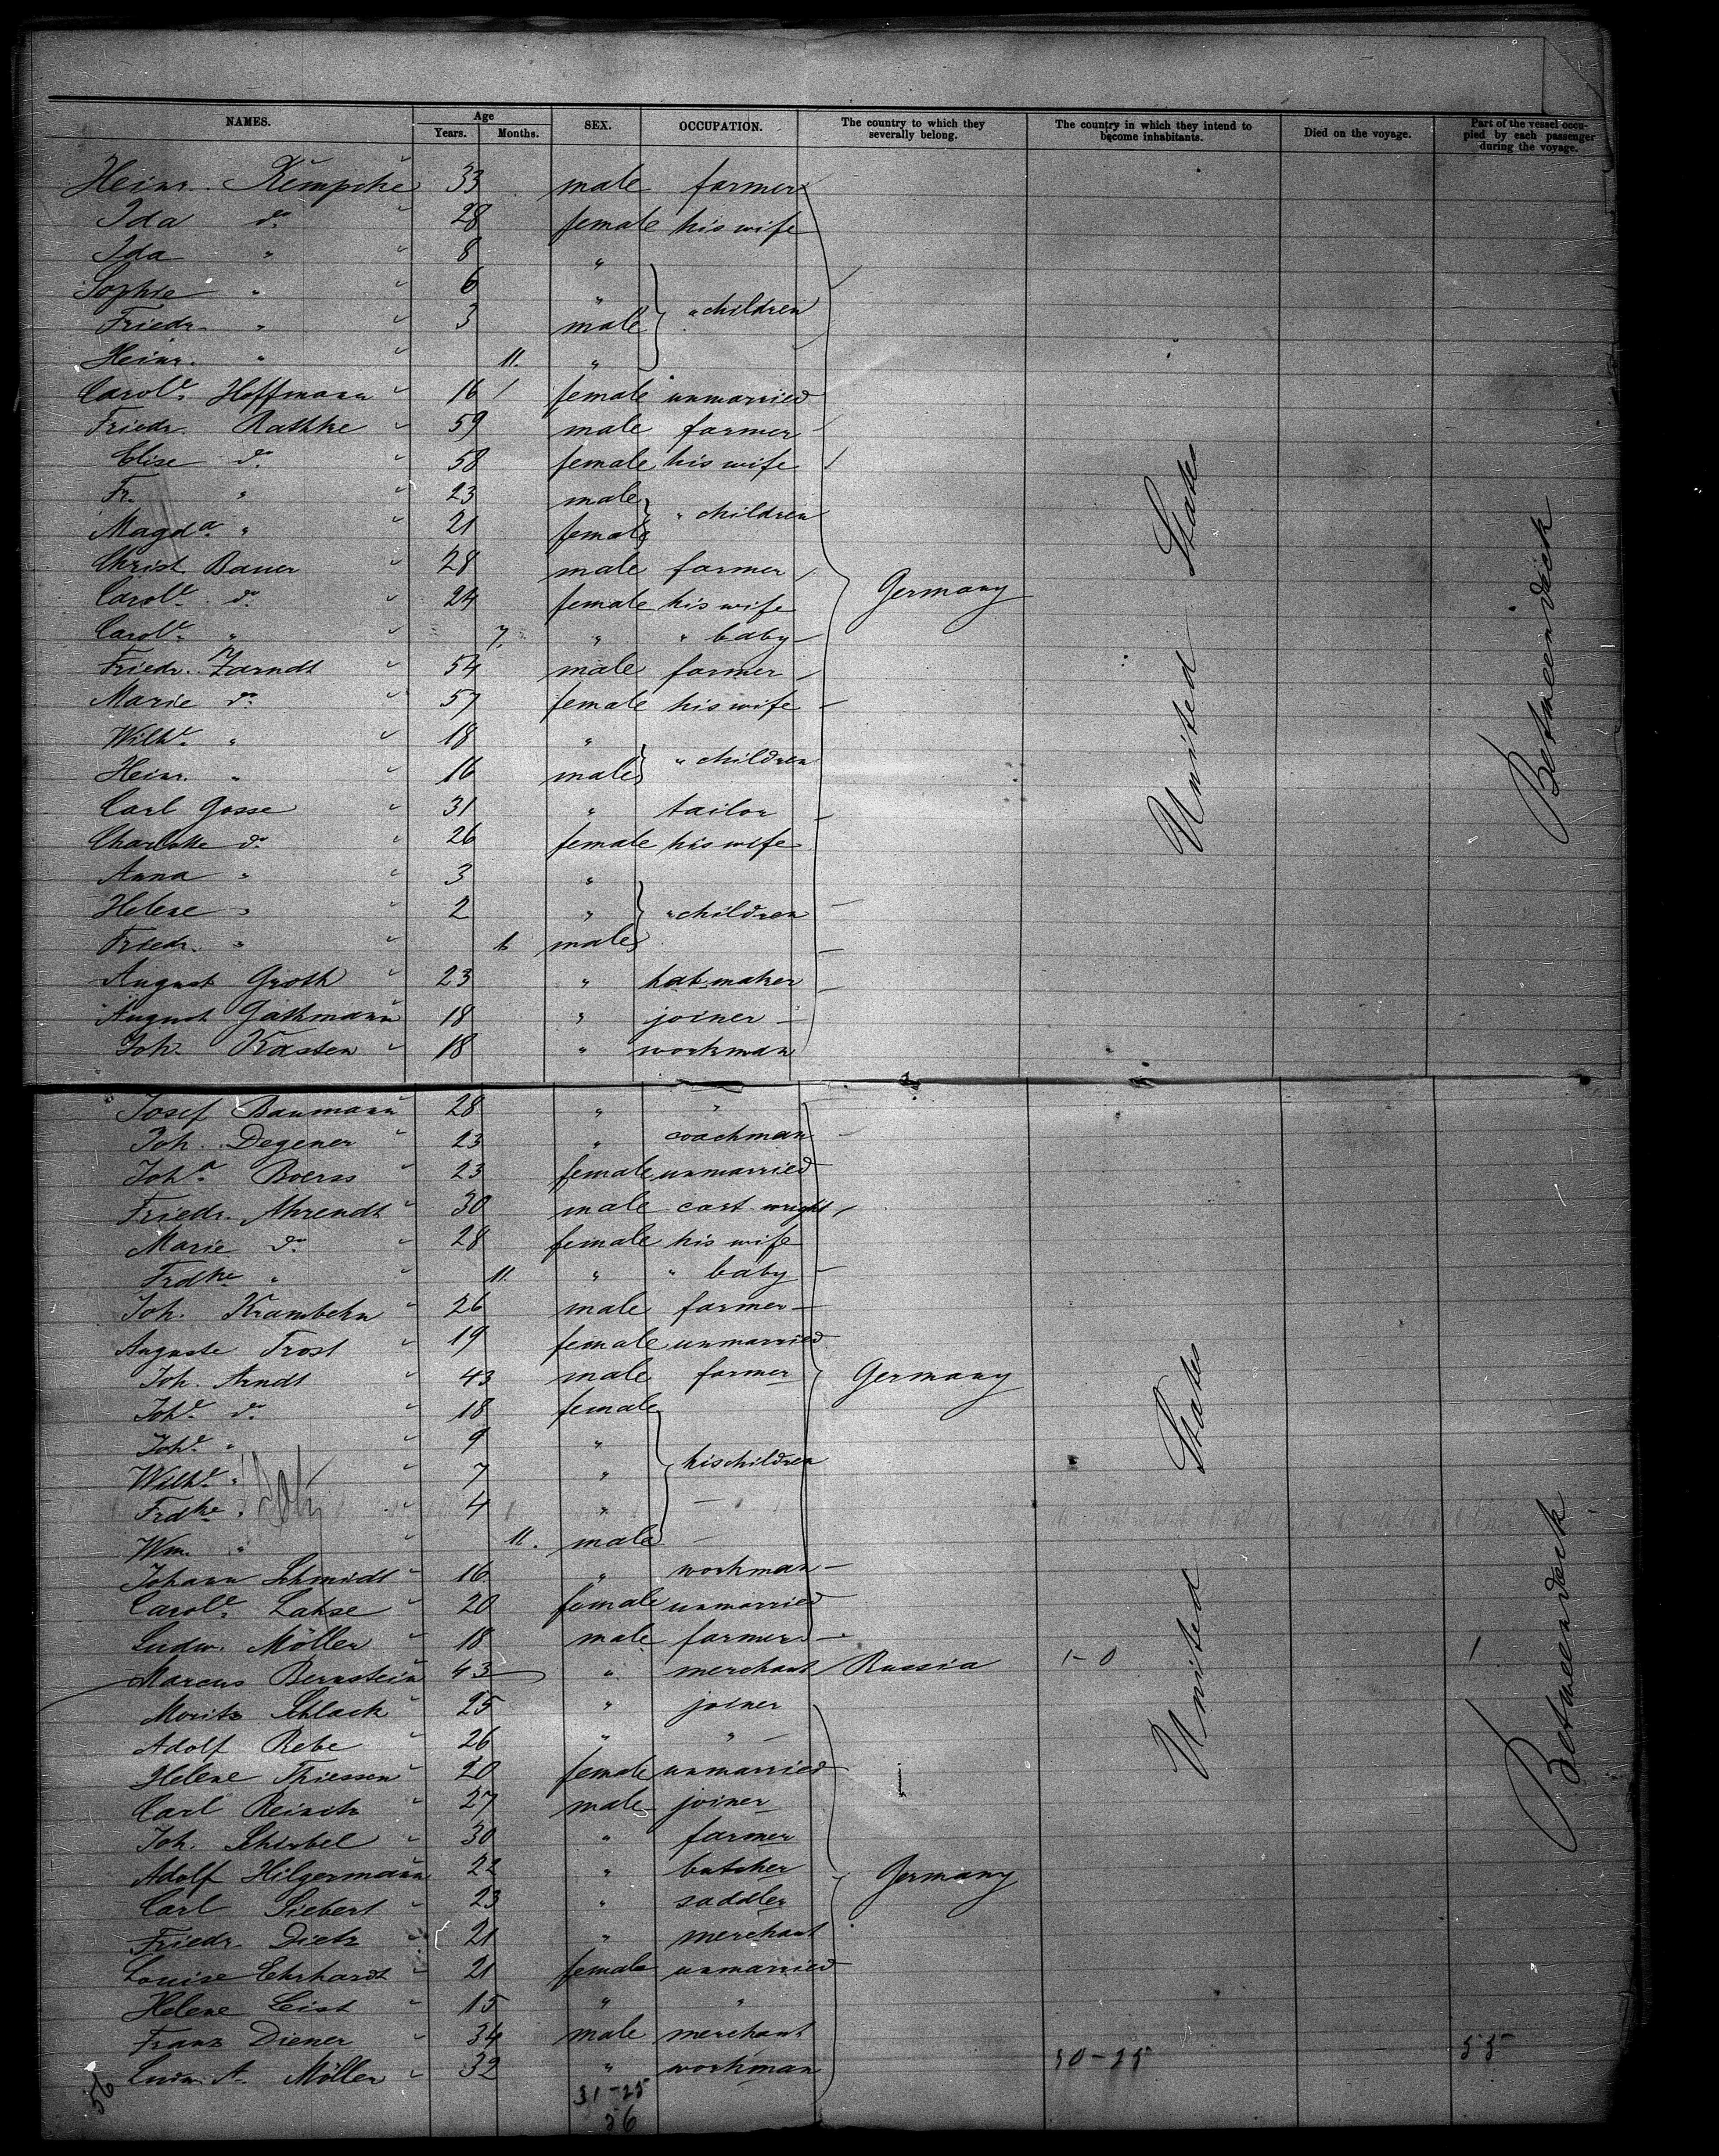 NAMES. Age Years. Months. SEX. OCCUPATION. The country to which they severally belong. The country in which they intend to become inhabitants. Died on the voyage. Part of the vessel occupied by each passenger during the voyage.
Heinr. Kempcke 33 male farmer
Ida do. 28 female his wife
Ida " 8 "
Sophie " 6 "
Friedr. " 3 male " children
Heinr. " 11. "
Carole. Hoffmann 16 female unmarried
Friedr. Rathke 59 male farmer
Elise do. 58 female his wife
Fr. " 23 male
Magda. " 21 female " children
Christ Bauer 28 male farmer
Carole. do. 24 female his wife Germany
Carole. " 7. " " baby
Friedr. Zarndt 54 male farmer
Marie do. 57 female his wife
Wilhe. " 18 "
Heinr. " 16 male " children
Carl Gosse 31 " tailor
Charlotte do. 26 female his wife
Anna " 3 "
Helene " 2 " " children
Friedr. " male
August Groth 23 " hatmaker
August Gathmann 18 " joiner
Joh. Kasten 18 " workman
United States
Betweendeck
Josef Baumann 28 " "
Joh. Degener 23 " coachman
Joha. Boerss 23 female unmarried
Friedr. Ahrendt 30 male cart-wright
Marie do. 28 female his wife
Frdke " 11. " " baby
Joh. Krambehn 26 male farmer
Auguste Trost 19 female unmarried
Joh. Arndt 43 male farmer Germany
Johe. do. 18 female
Johe. " 9 "
Wilhe. " 7 " his children
Frdke " 4 "
Wm. " 11. male
Johann Schmidt 16 " workman
Carole. Lahse 20 female unmarried
Ludw. Möller 18 male farmer
Marcus Bernstein 43 " merchant Russia 1-0 1
Moritz Schlack 25 " joiner
Adolf Rebe 26 " "
Helene Thiessen 20 female unmarried
Carl 27 male joiner
Joh. Schirbel 30 " farmer
Adolf Hilgermann 22 " butcher Germany
Carl Siebert 23 " saddler
Friedr. Dietz 21 " merchant
Louise Ehrhardt 21 female unmarried
Helene Leist 15 " "
Franz Diener 34 male merchant
Ludw. A. Möller 32 " workman 30-25 55
United States
Betweendeck
31-25
56
56